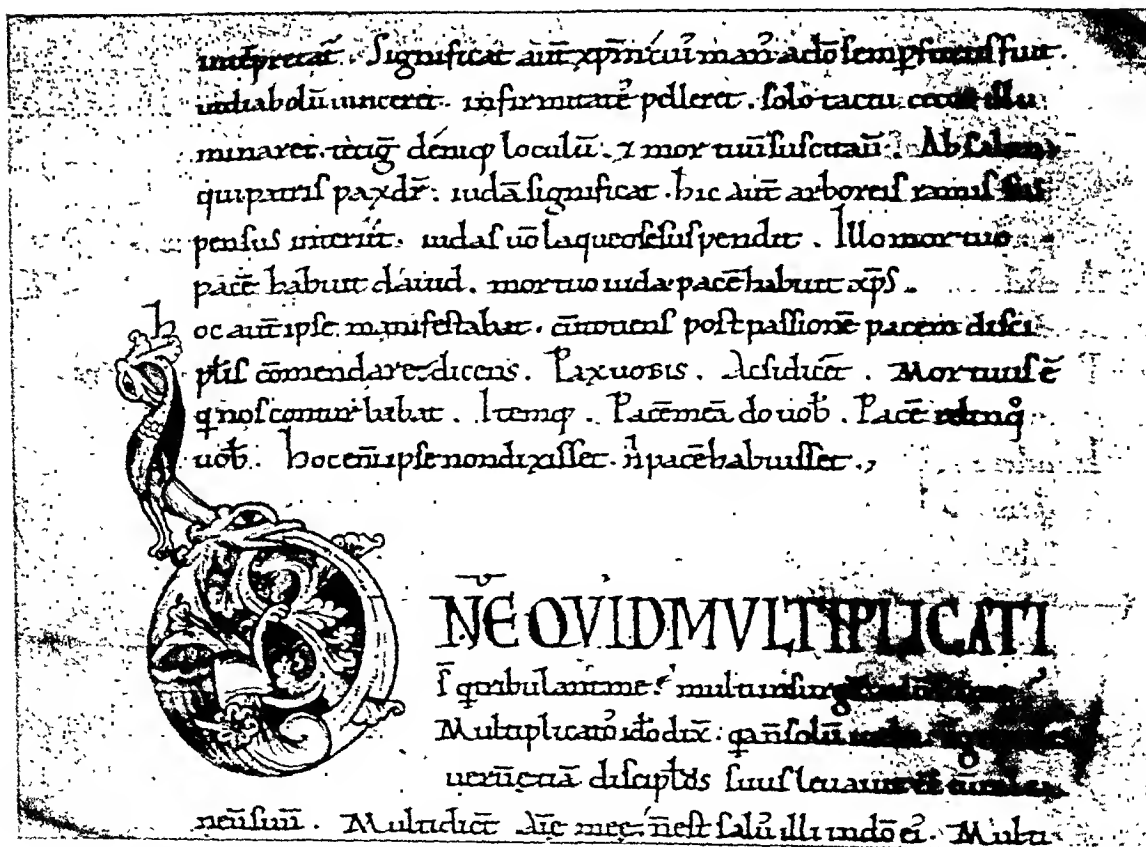 intp̄retat̄. Significat aūt xp̄m cui᾽ man᾽ adō semp̱ fortis fuit.
ut diabolū uinceret. infirmitatē pelleret. solo tactu cecos illu
minaret. tetig̃ deniq; loculū. ⁊ mortuū suscitauit̄. Absalon
qui patris pax dr̄: iudā significat. hic aūt arboreis ramis sus
pensus interiit. iudas uō laqueo se suspendit. Illo mortuo
pacē habuit dauid. mortuo iuda pacē habuit xp̄s.
hoc aūt ipse manifestabat. cū totiens post passionē pacem disci
pl̄is cōmendaret dicens. Pax uobis. Ac si dicēt. Mortuus ē
q̇ nos conturbabat. Itemq;. Pacē meā do uob̄. Pacē relinq̊
uob̄. hoc eni̅ ipse non dixisset. n̓ pacē habuisset.,
DN̄E QVID MVLTIPLICATI
s̄ q̇ tribulant me? multi insurg̃
Multiplicatos ido dix̄: q̇a n̄ solū
ueru̅ etiā discipl̄us suus leuauit
neū suū. Multi dicūt aīe meę: n̄ est salus illi in dō ei᾽. Multi